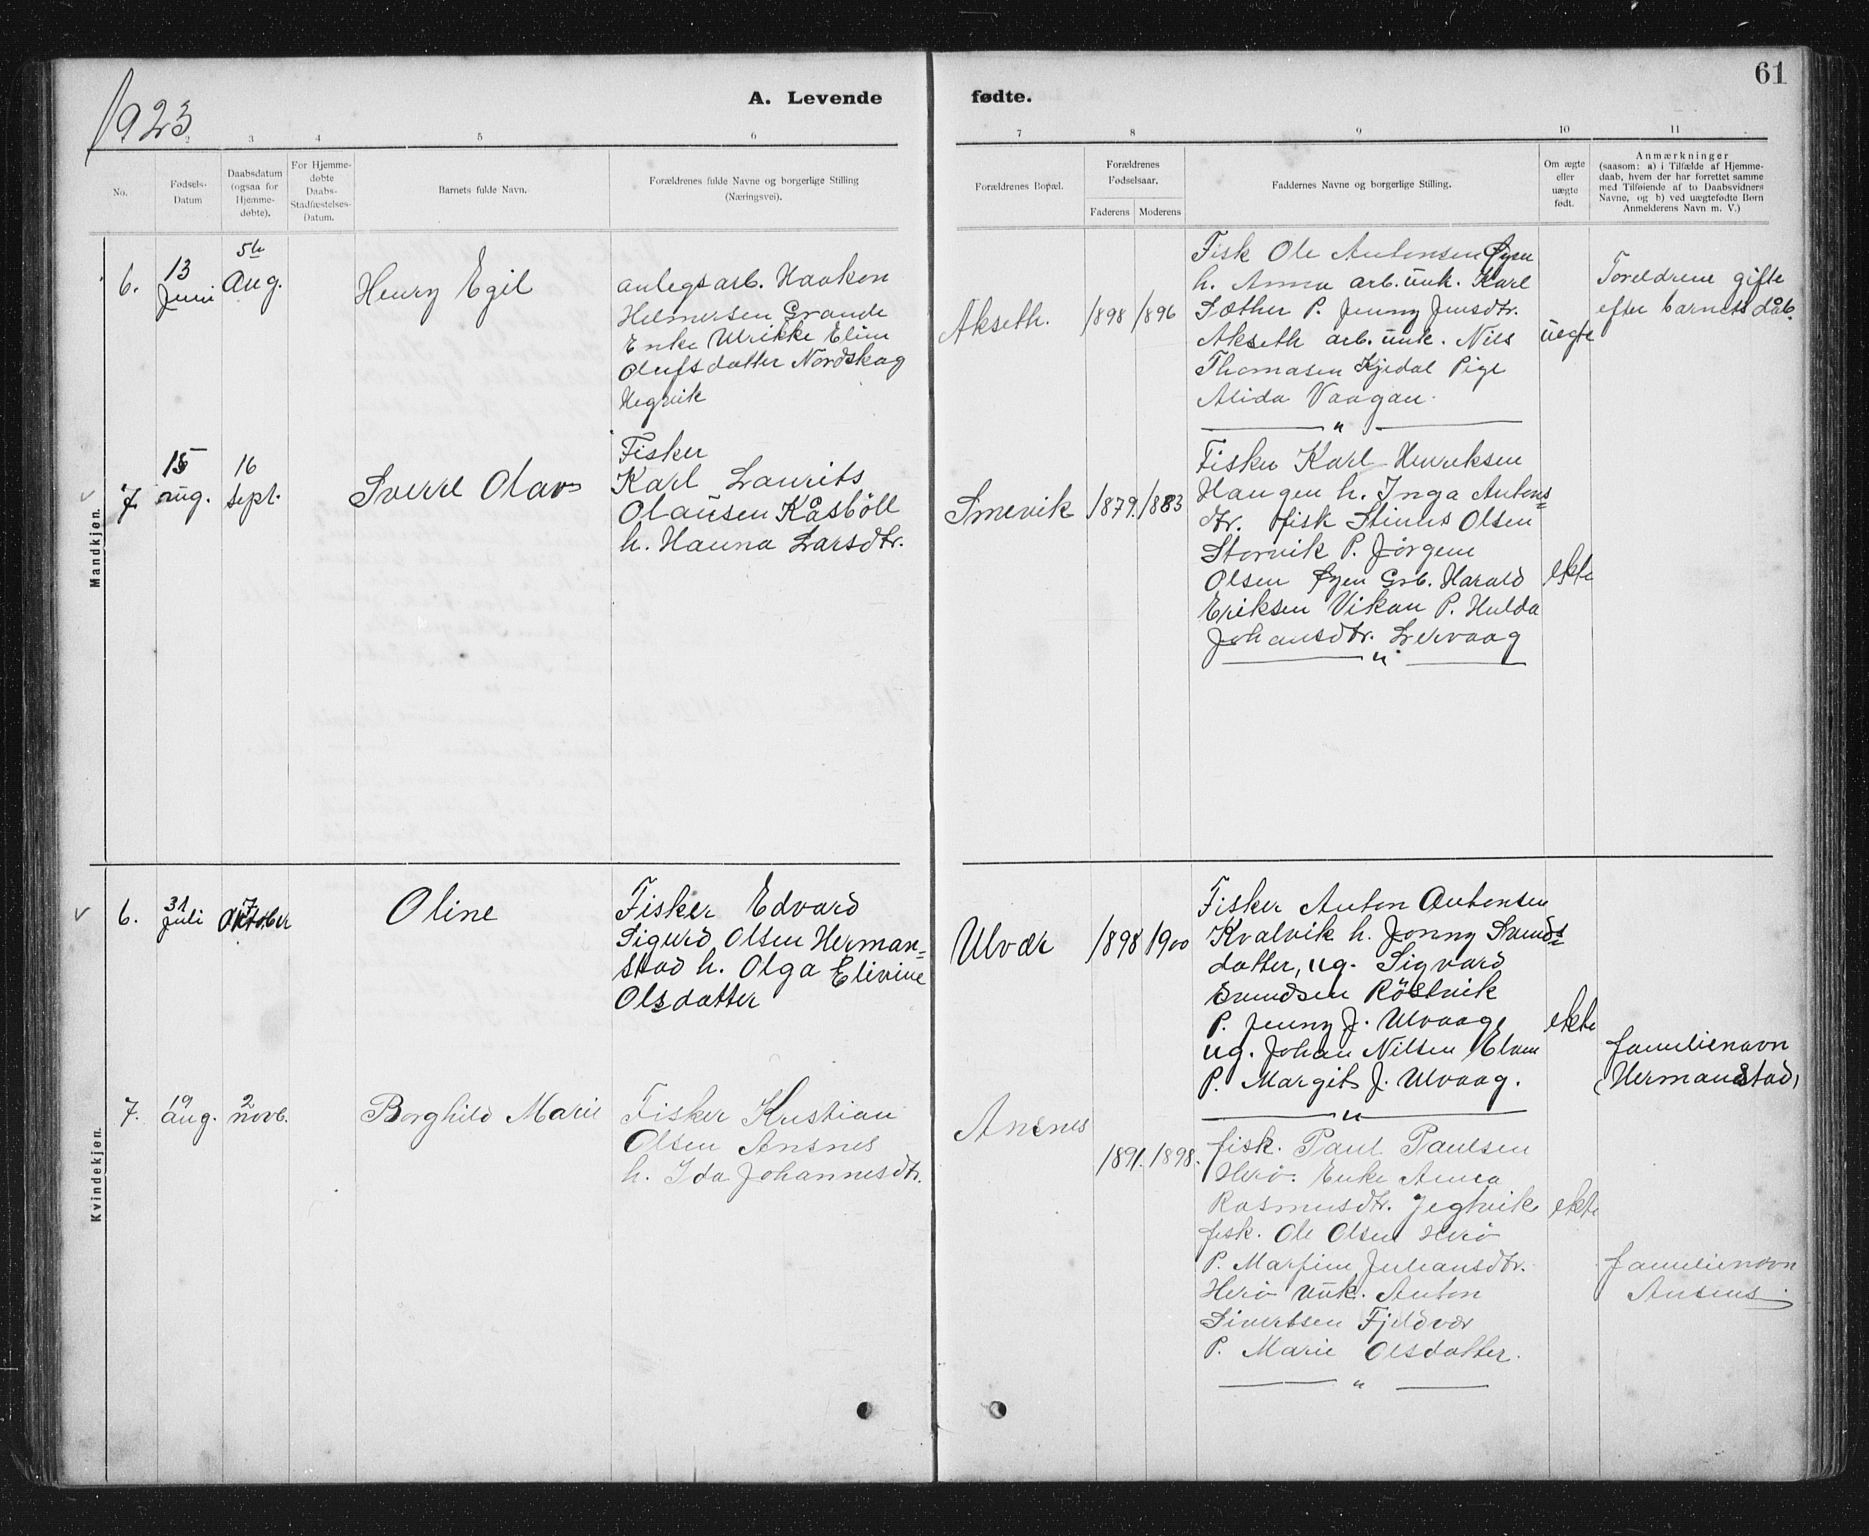 1923
A. Levende fødte.
61
2 3 4 5 6 7 8 9 10 11
No.
Fødsels-
Datum
Daabsdatum
(ogsaa for
Hjemme-
døbte).
For Hjemme-
døbte
Daabs-
Stadfæstelses-
Datum.
Barnets fulde Navn.
Forældrenes fulde Navne og borgerlige Stilling
(Næringsvei).
Forældrenes Bopæl.
Forældrenes
Fødselsaar.
Faderens Moderens
Faddernes Navne og borgerlige Stilling.
Om ægte
eller
uægte
født.
Anmærkninger
(saasom: a) i Tilfælde af Hjemme-
daab, hvem der har forrettet samme
med Tilføiende af to Daabsvidners
Navne, og b) ved uægtefødte Børn
Anmelderens Navn m. V.)
Mandkjøn.
6.
13
Juni
5te
Aug.
Henry Egil
anlegsarb. Haakon
Helmersen Grande
Enke Ulrikke Eline
Olufsdatter Nordskag
Hegvik
Akseth.
1898 1896
Fisk Ole Antonsen Øyen
h. Anna arb. unk. Karl
Sæther P. Jenny Jensdtr.
Akseth arb. unk. Nils
Thomasen Kjedal Pige
Alida Vaagan.
"
uegte
Foreldrene gifte
efter barnets dåb.
7.
15
aug.
16
sept.
Sverre Olav
Fisker
Karl Laurits
Olausen Kåsböll
h. Hanna Larsdtr.
Smevik
1879. 1883
Fisker Karl Henriksen
Haugen h. Inga Antons=
dtr. fisk Stinus Olsen
Storvik P. Jørgine
Olsen Øyen Grb. Harald
Eriksen Vikan P. Hulda
Johansdtr. Lervaag
"
ekte
Kvindekjøn.
6.
31
Juli
7
Oktober
Oline
Fisker Edvard
Sigurd Olsen Herman=
stad h. Olga Elivine
Olsdatter
Ulvær
1898 1900
Fisker Anton Antonsen
Kvalvik h. Jonny Svends=
datter, ug. Sigvard
Svendsen Röstvik
P. Jenny J. Ulvaag
ug. Johan Nilsen
P. Margit J. Ulvaag.
"
ekte
familienavn
(Hermanstad)
7.
19
aug.
2
novb.
Borghild Marie
Fisker Kristian
Olsen Ansnes
h. Ida Johannesdtr.
Ansnes
1891. 1898.
fisk. Paul Paulsen
Herö. Enke Anna
Rasmusdtr. Jegtvik
fisk. Ole Olsen Herö
P. Marfine Juliansdtr.
Herö unk. Anton
Sivertsen Fjeldvær
P. Marie Olsdatter.
"
ekte
familienavn
Ansnes.